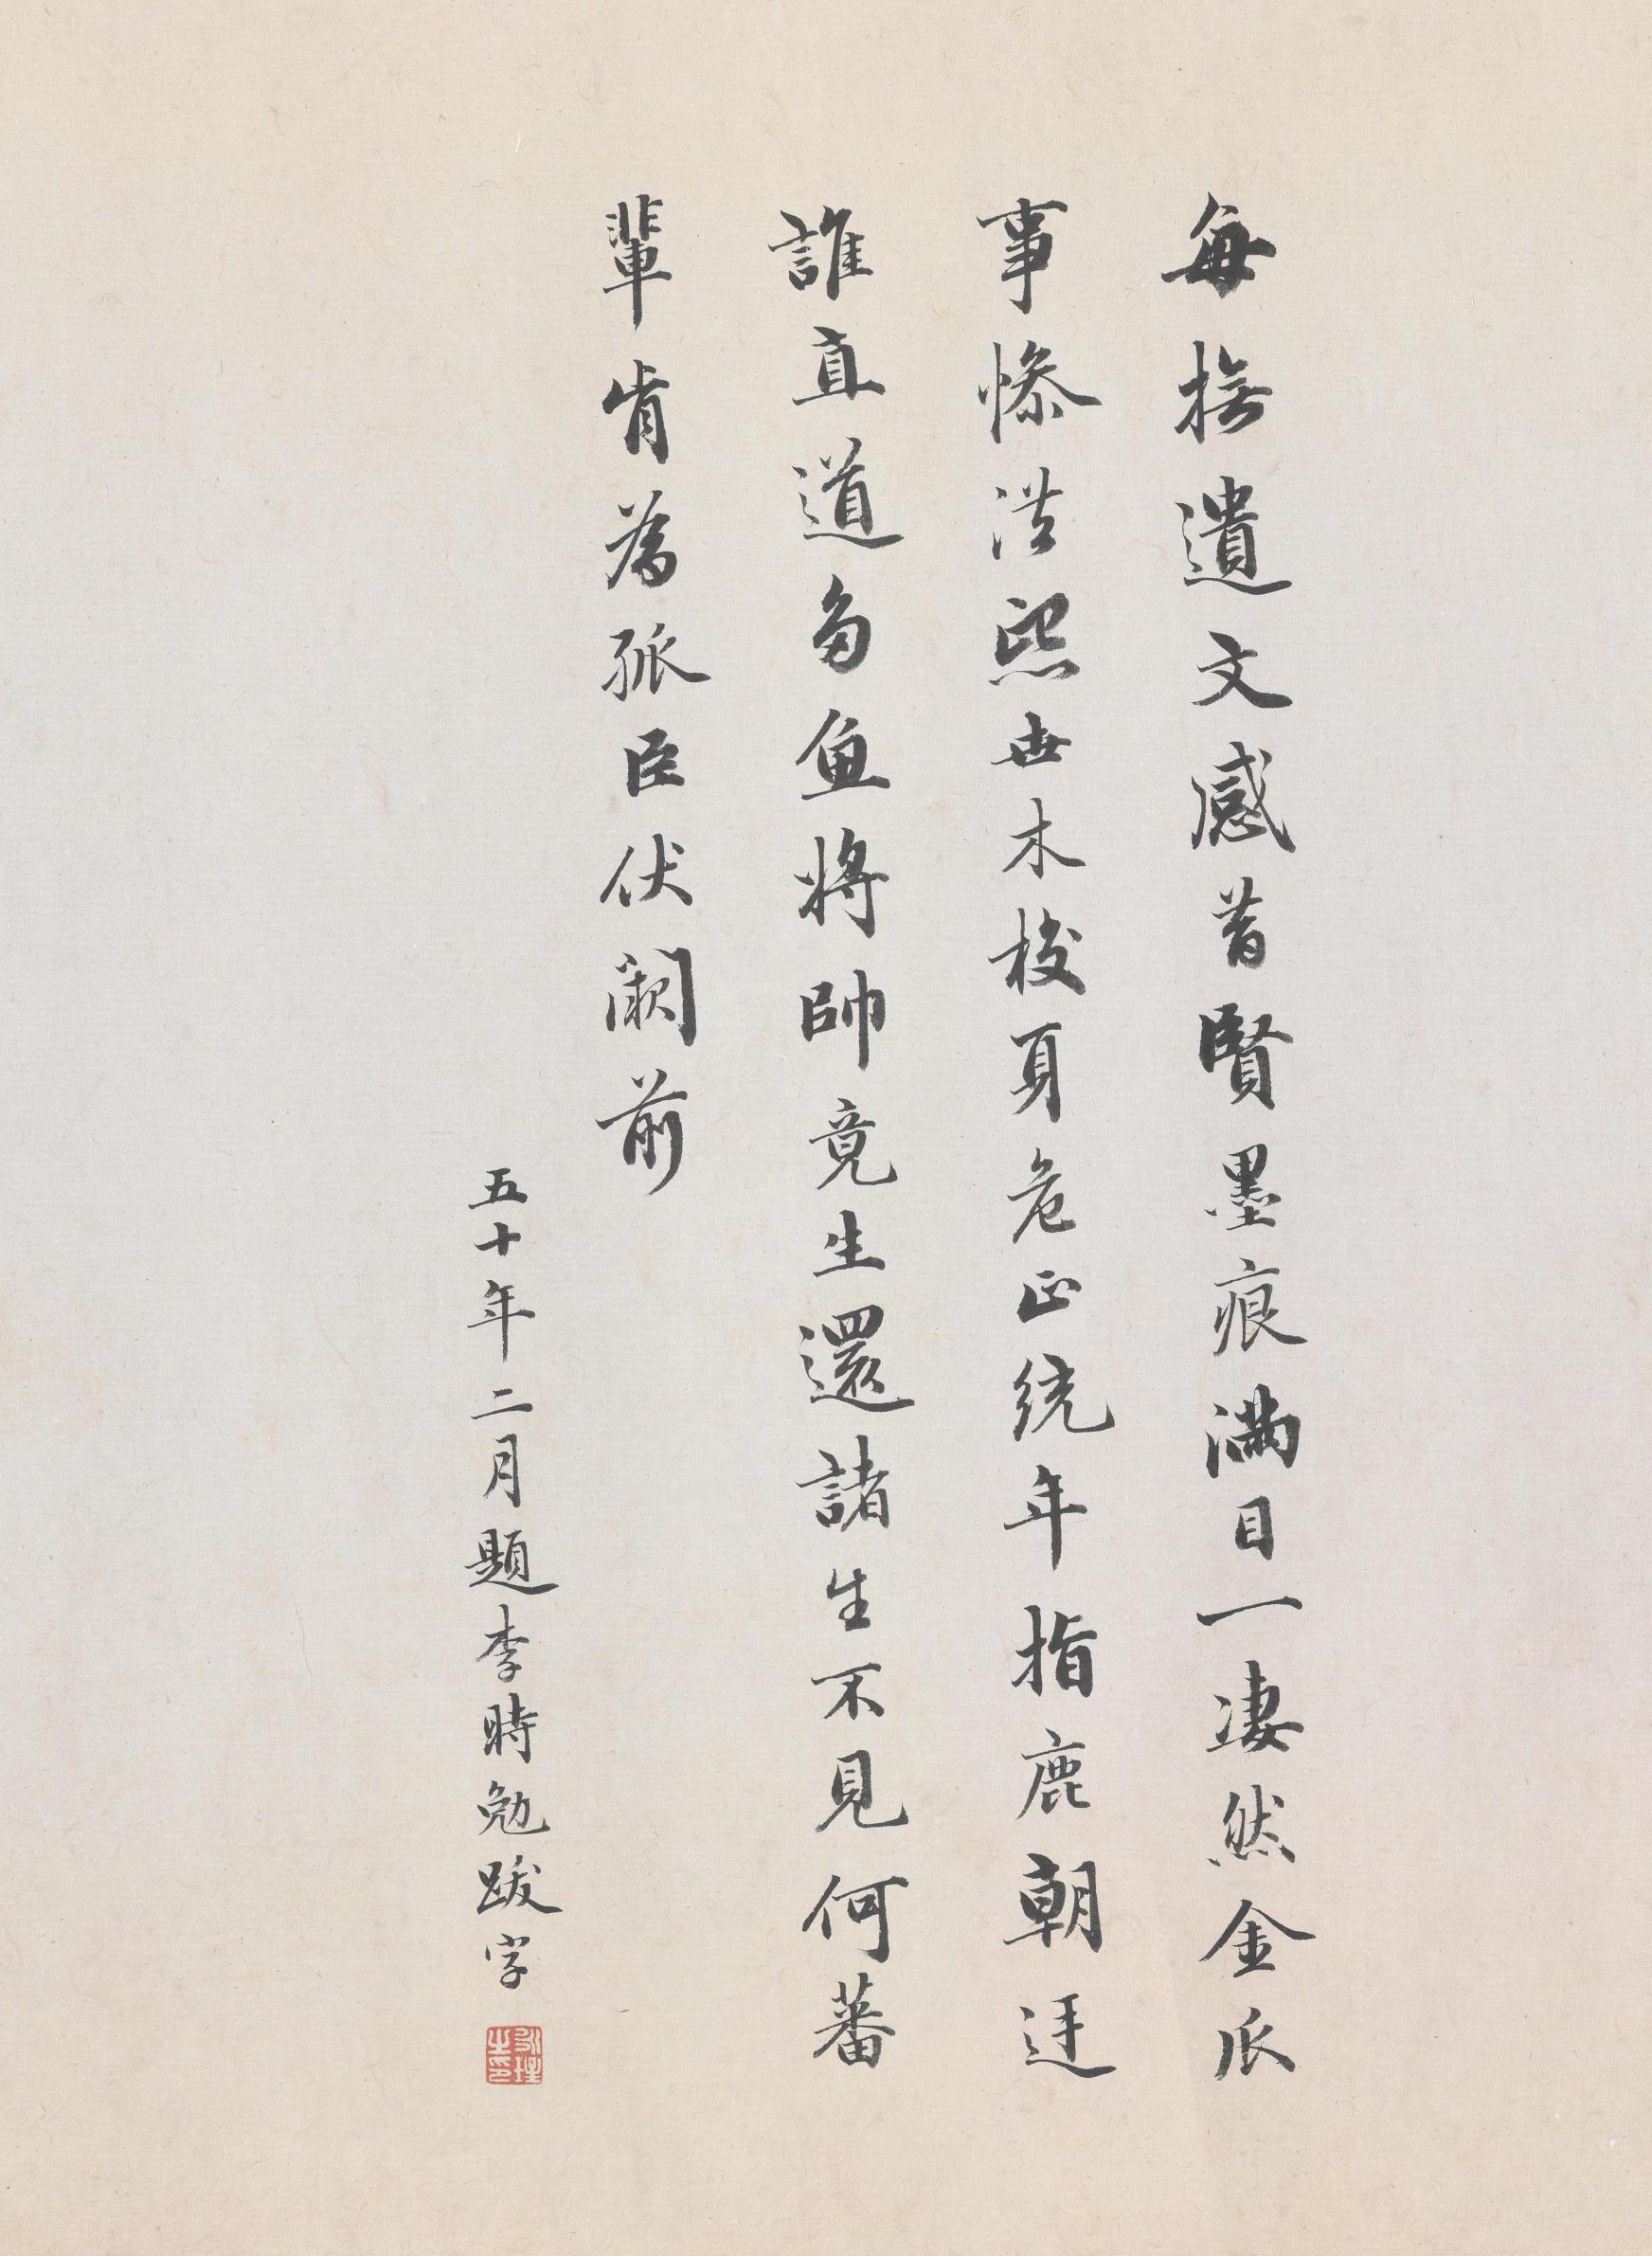 每撫遺文感昔賢墨痕滿目一淒然金瓜
事慘洪熙世木校身危正統年指鹿朝廷
誰直道魚將帥竟生還諸生不見何蕃
輩肯為孤臣伏闕前
五十年二月題李時勉跋字